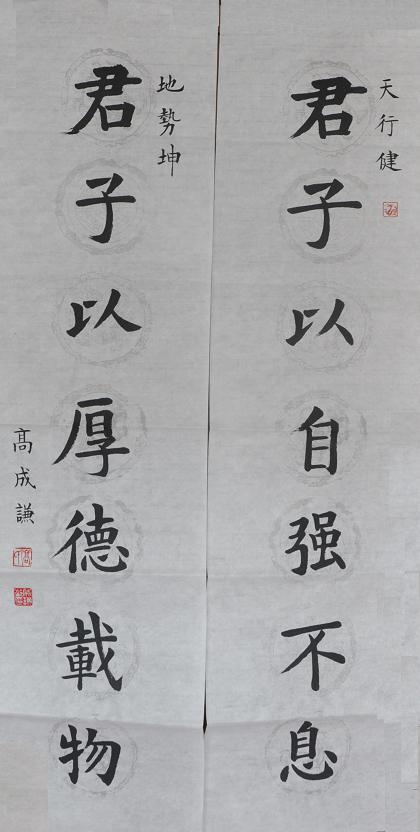 天行健
君子以自强不息
地勢坤
君子以厚德載物
高成謙